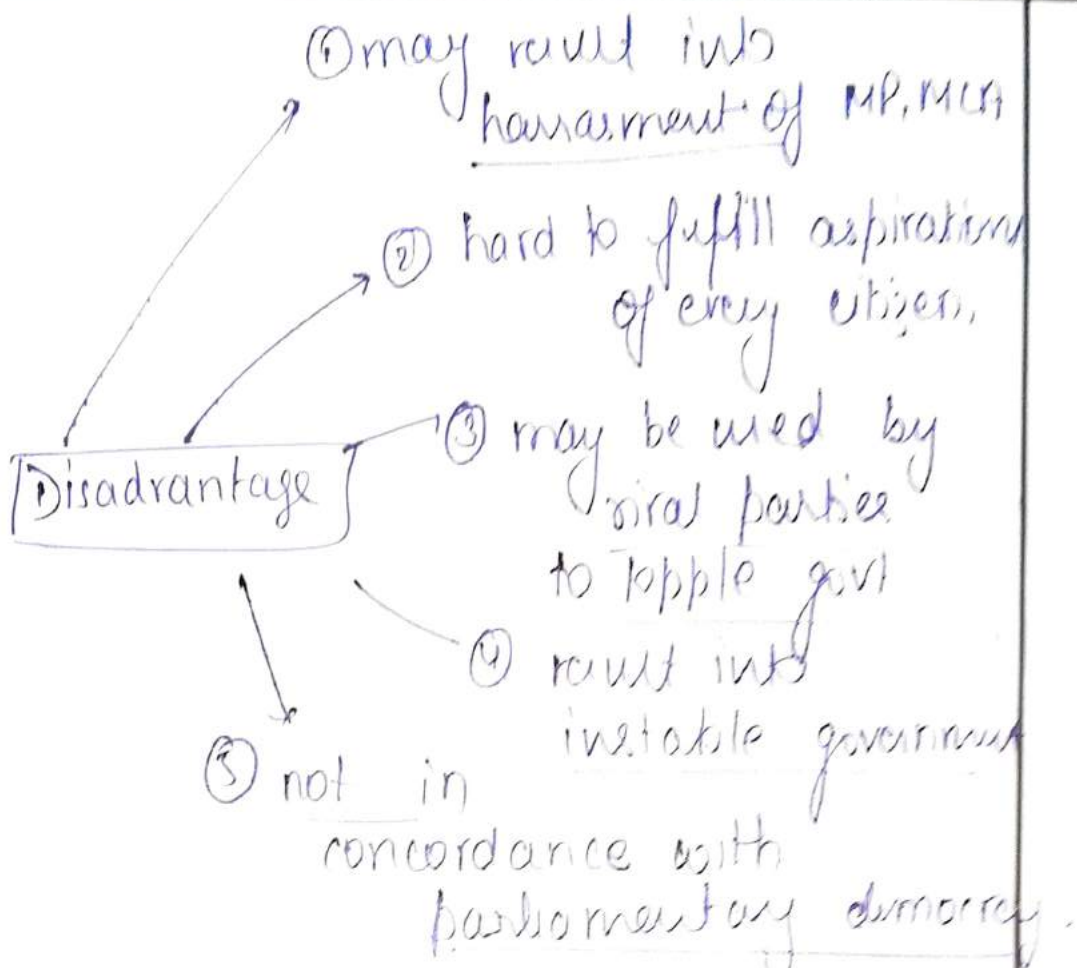 ① may result into
harrasment of MP, MLA
② hard to fulfill aspirations
of every citizen.
Disadvantage
③ may be used by
rival parties
to topple govt
④ result into
instable government
⑤ not in
concordance with
parliamentary democracy.